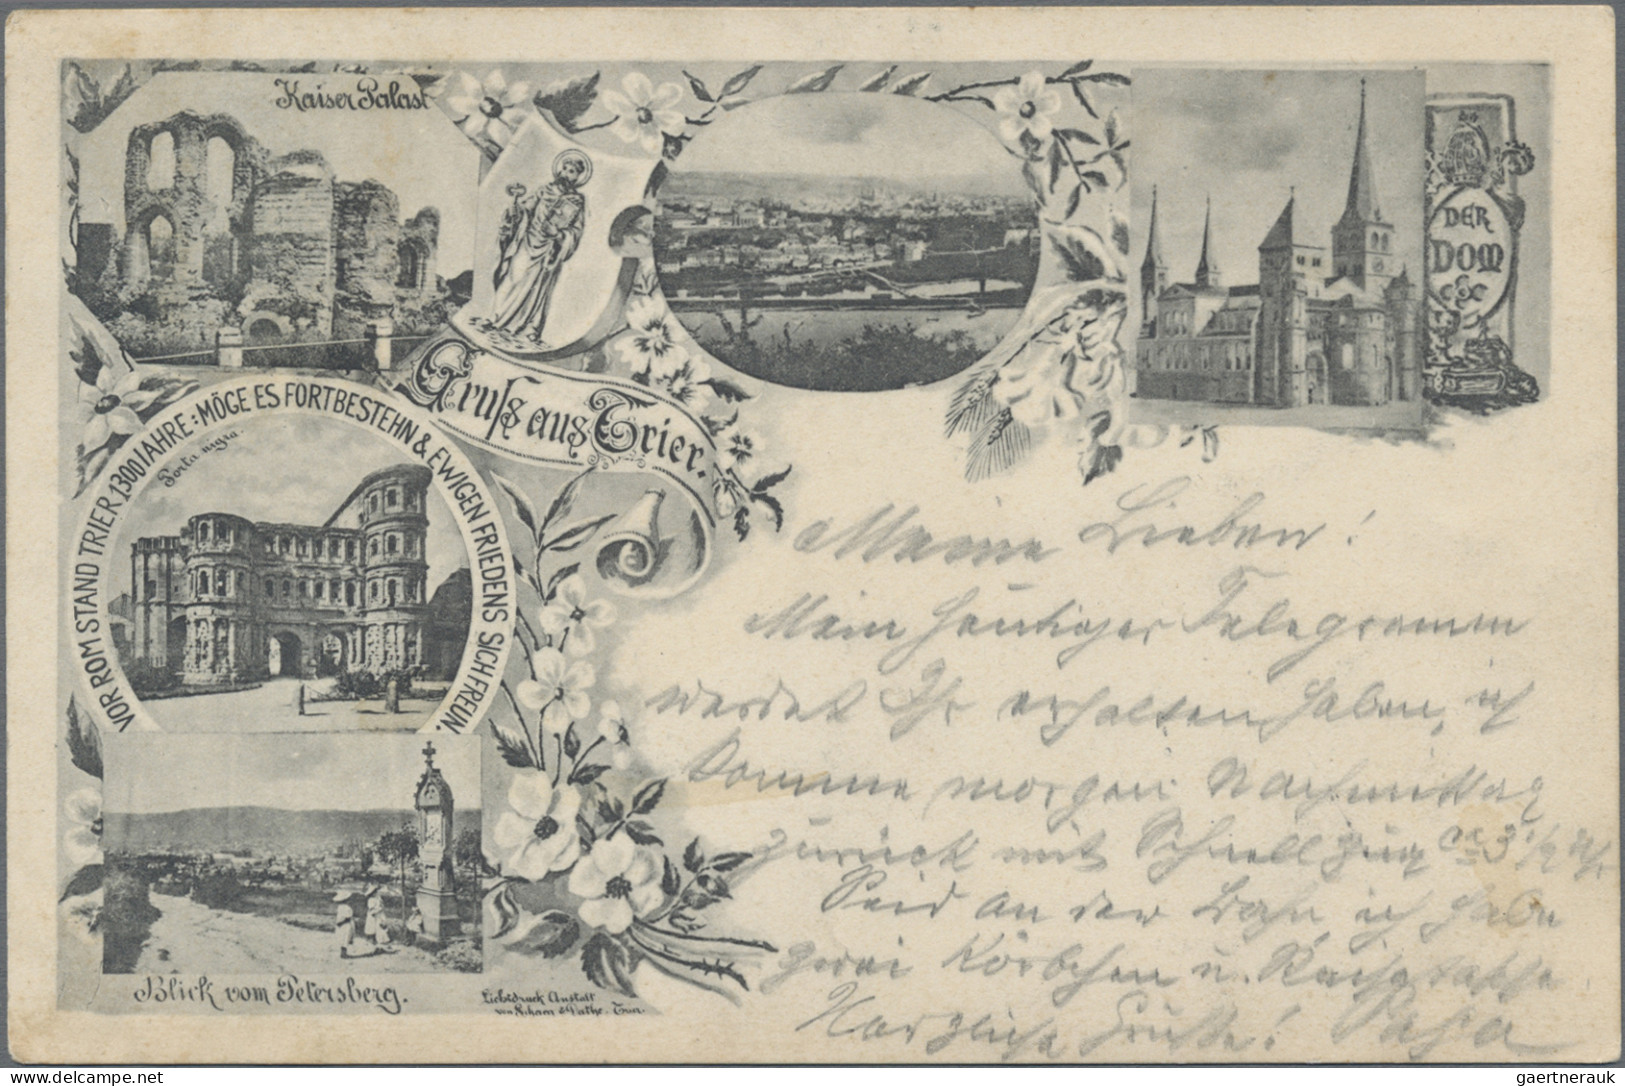 Kaiser Palast
DER
DOM
Gruß aus Trier.
VOR ROM STAND TRIER 1300 JAHRE: MÖGE ES FORTBESTEHN & EWIGEN FRIEDENS SICH FREUN.
Porta nigra.
Meine Lieben!
Mein heutiges Telegramm
werdet Ihr erhalten haben, ich
komme morgen Nachmittag
zurück mit Schnellzug 3 1/2 Uhr
Seid an der Bahn, ich habe
zwei Körbchen u. Reisetasche
Herzliche Grüße! Papa
Blick vom Petersberg.
Lichtdruck Anstalt
von Schaar & Dathe, Trier.
delcampe.net
gaertnerauk